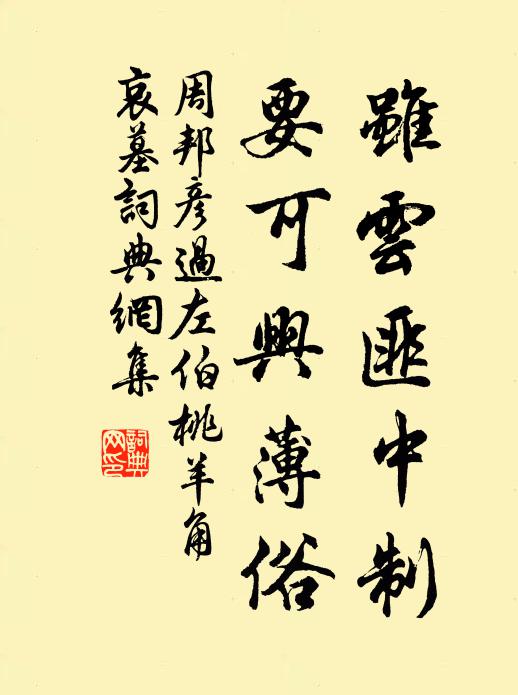 雖雲匪中制
要可興薄俗
周邦彥過左伯桃羊角
哀墓詞典網集
詞典
网印